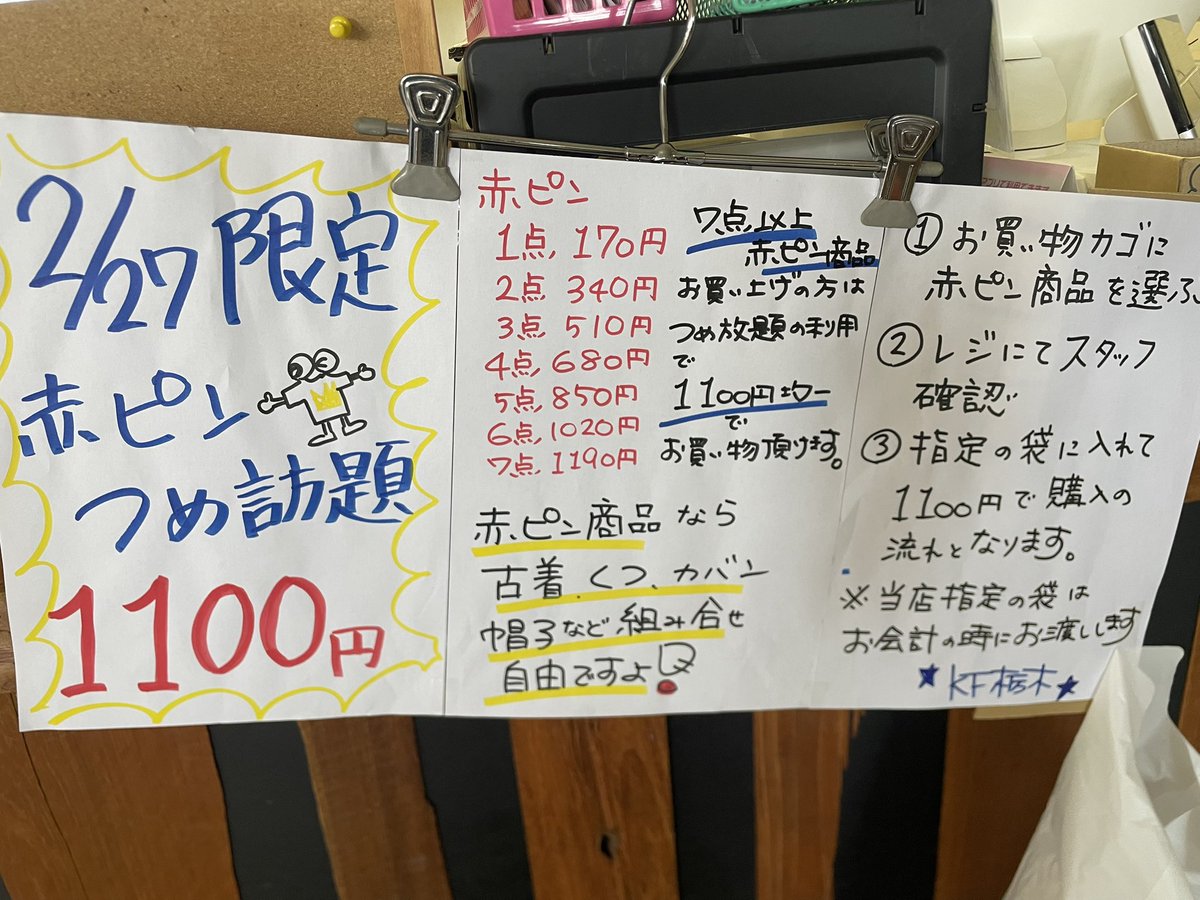 2/27限定
赤ピン
つめ放題
1100円
赤ピン
1点、170円
2点 340円
3点 510円
4点、680円
5点、850円
6点、1020円
7点、1190円
7点以上
赤ピン商品
お買い上げの方は
つめ放題の利用
で
1100円均一
で
お買い物頂けます。
赤ピン商品なら
古着、くつ、カバン
帽子など組み合せ
自由ですよ!
①お買い物カゴに
赤ピン商品を選ぶ
②レジにてスタッフ
確認
③指定の袋に入れて
1100円で購入の
流れとなります。
※当店指定の袋は
お会計の時にお渡しします
★KF栃木★